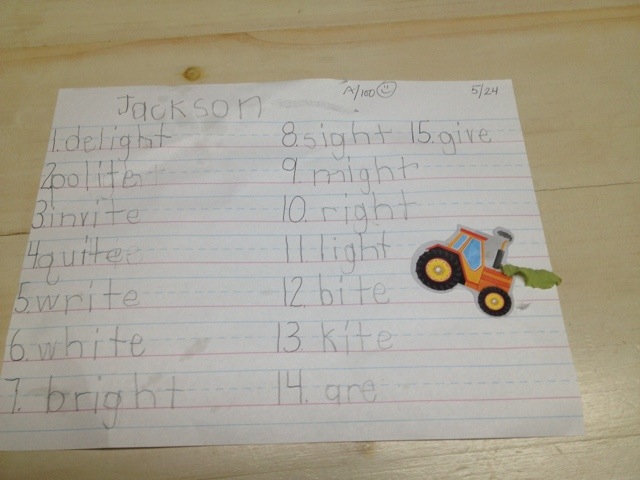 A/100 5/24
Jackson
1. delight 8. sight 15. give
2. polite 9. might
3. invite 10. right
4. quite 11. light
5. write 12. bite
6. white 13. kite
7. bright 14. are